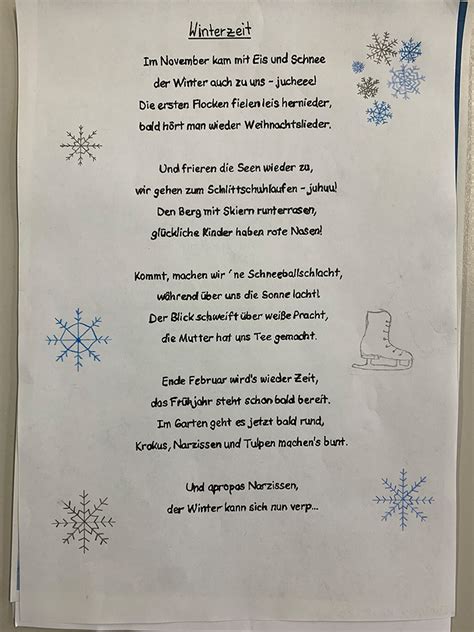 Winterzeit
Im November kam mit Eis und Schnee
der Winter auch zu uns - jucheee!
Die ersten Flocken fielen leis hernieder,
bald hört man wieder Weihnachtslieder.
Und frieren die Seen wieder zu,
wir gehen zum Schlittschuhlaufen - juhuu!
Den Berg mit Skiern runterrasen,
glückliche Kinder haben rote Nasen!
Kommt, machen wir 'ne Schneeballschlacht,
während über uns die Sonne lacht!
Der Blick schweift über weiße Pracht,
die Mutter hat uns Tee gemacht.
Ende Februar wird's wieder Zeit,
das Frühjahr steht schon bald bereit.
Im Garten geht es jetzt bald rund,
Krokus, Narzissen und Tulpen machen's bunt.
Und apropos Narzissen,
der Winter kann sich nun verp...